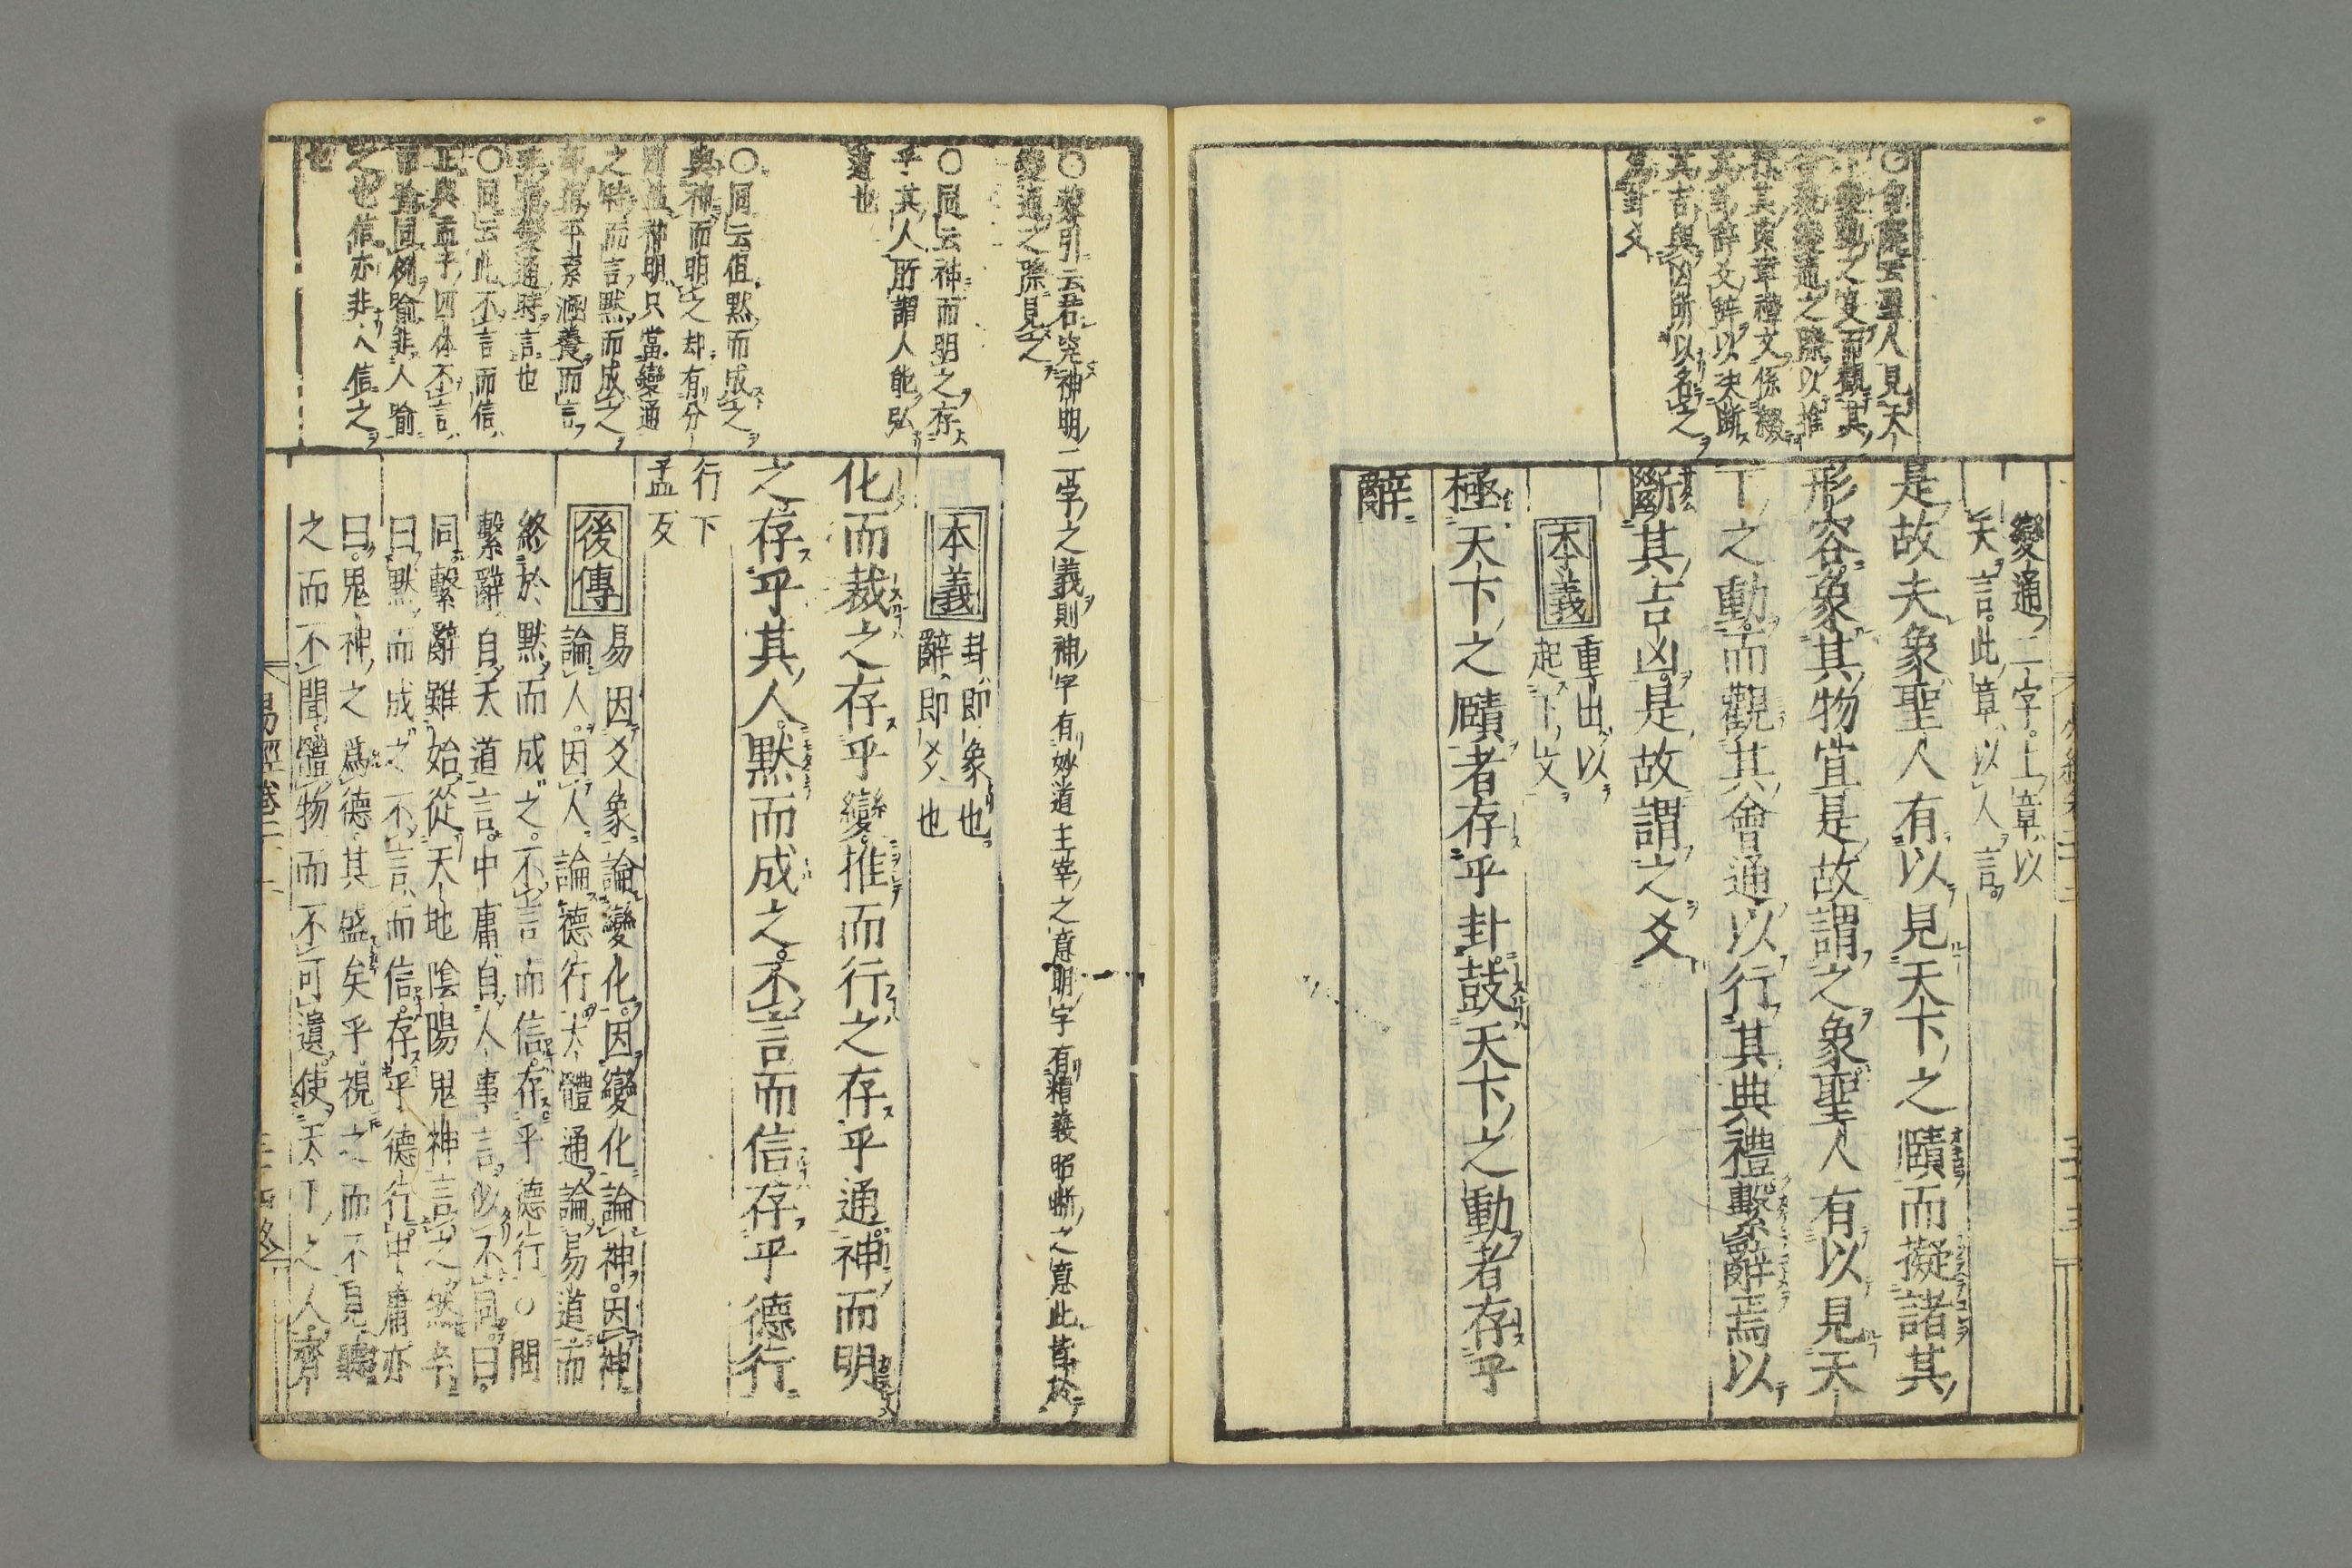 變通二字上章以
天言此章以人言
是故夫象聖人有以見天下之賾而擬諸其
形容象其物宜是故謂之象聖人有以見天
下之動而觀其會通以行其典禮繫辭焉以
斷其吉凶是故謂之爻
本義
重出以
起下文
極天下之賾者存乎卦鼓天下之動者存乎
辭
其吉與凶所以名之
為卦爻
○蒙引云若究神明二字之義則神字有妙道主宰之意明字有精義昭晰之意此皆於
變通之際見之
○同云神而明之存
乎其人所謂人能弘
道也
○同云但默而成之
與神而明之却有分
之時而言默而成之
○同云此不言而信
正與孟子四体不言
而喻同例喻非人喻
之也信亦非人信之
也
本義
卦即象也
辭即爻也
化而裁之存乎變推而行之存乎通神而明
之存乎其人默而成之不言而信存乎德行
行下
孟反
後傳
易因爻象論變化因變化論神因神
論人因人論德行大體通論易道而
終於默而成之不言而信存乎德行○閩
繫辭自天道言中庸自人事言似不同曰
同繫辭雖始從天地陰陽鬼神言之然
曰默而成之不言而信存乎德行中庸亦
曰鬼神之爲德其盛矣乎視之而不見聽
之而不聞體物而不可遺使天下之人齊
易經卷二十